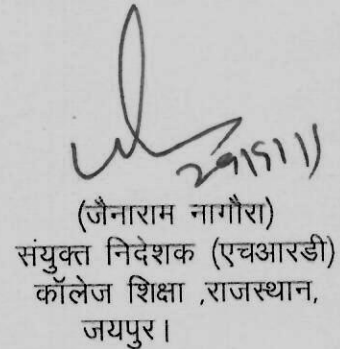 29/5/11
(जैनाराम नागौरा)
संयुक्त निदेशक (एचआरडी)
कॉलेज शिक्षा ,राजस्थान,
जयपुर।